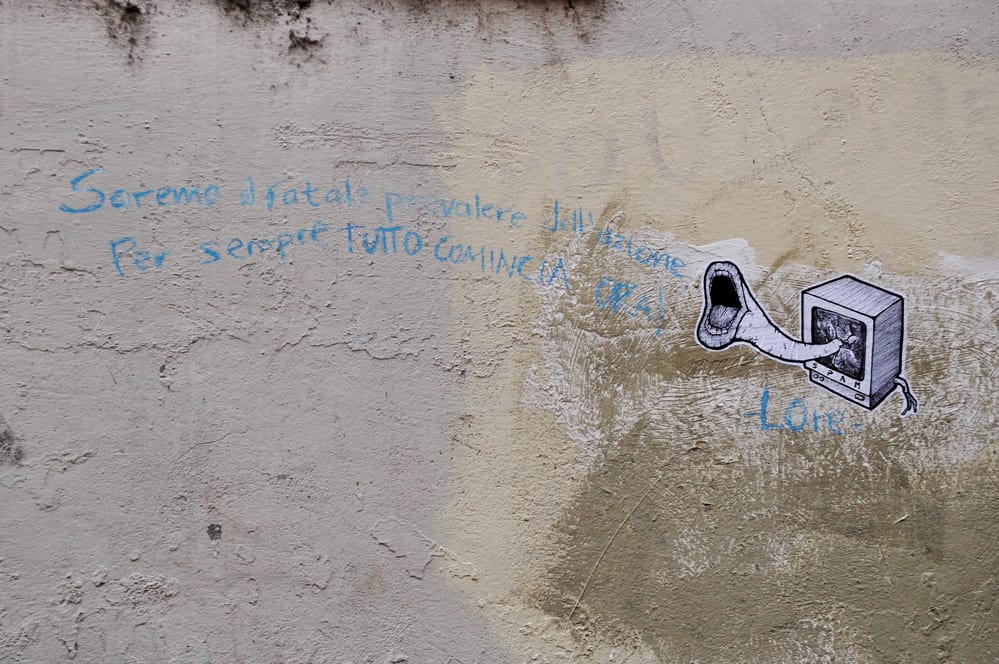 Saremo il fatale prevalere dell'azione
Per sempre TUTTO COMINCIA ORA!
SPAM
-LOre-